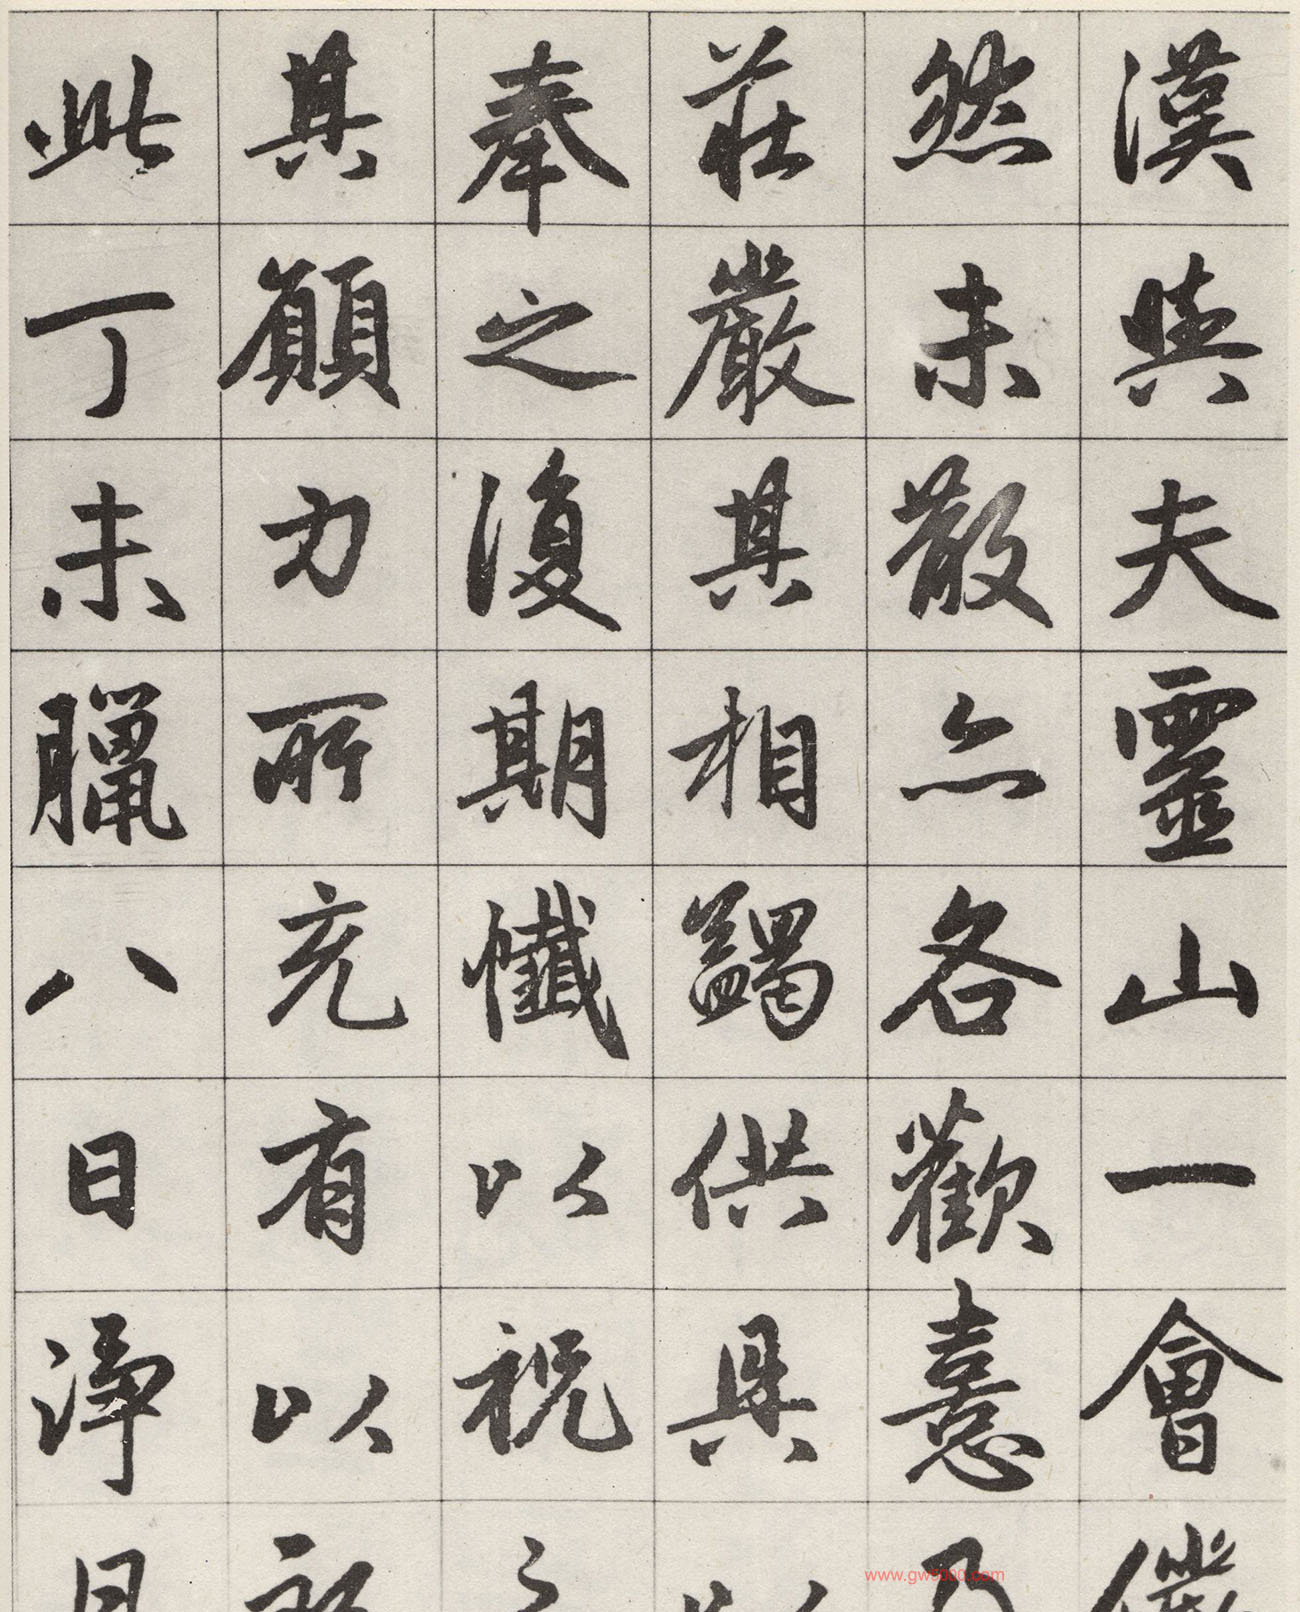 漢與夫靈山一會僊
然未散亦各歡憙乃
莊嚴其相蠲供具以
奉之復期懺以祝
其願力所充有以
此丁未臘八日淨
www.gw5000.com